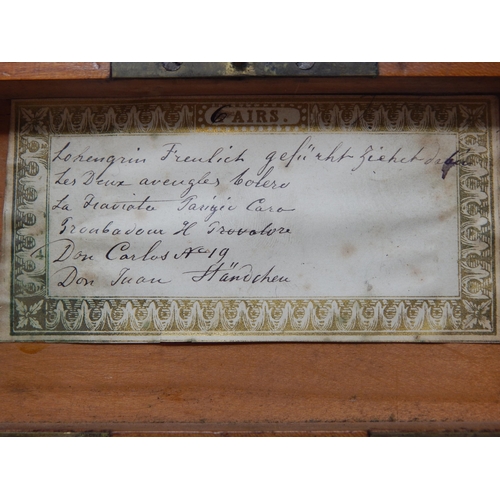 6 AIRS.
Lohengrin Freulich geführt Ziehet dahin
Les Deux aveugles Bolero
La Traviata Parigi Cara
Troubadour Il Trovatore
Don Carlos No 19
Don Juan Ständchen